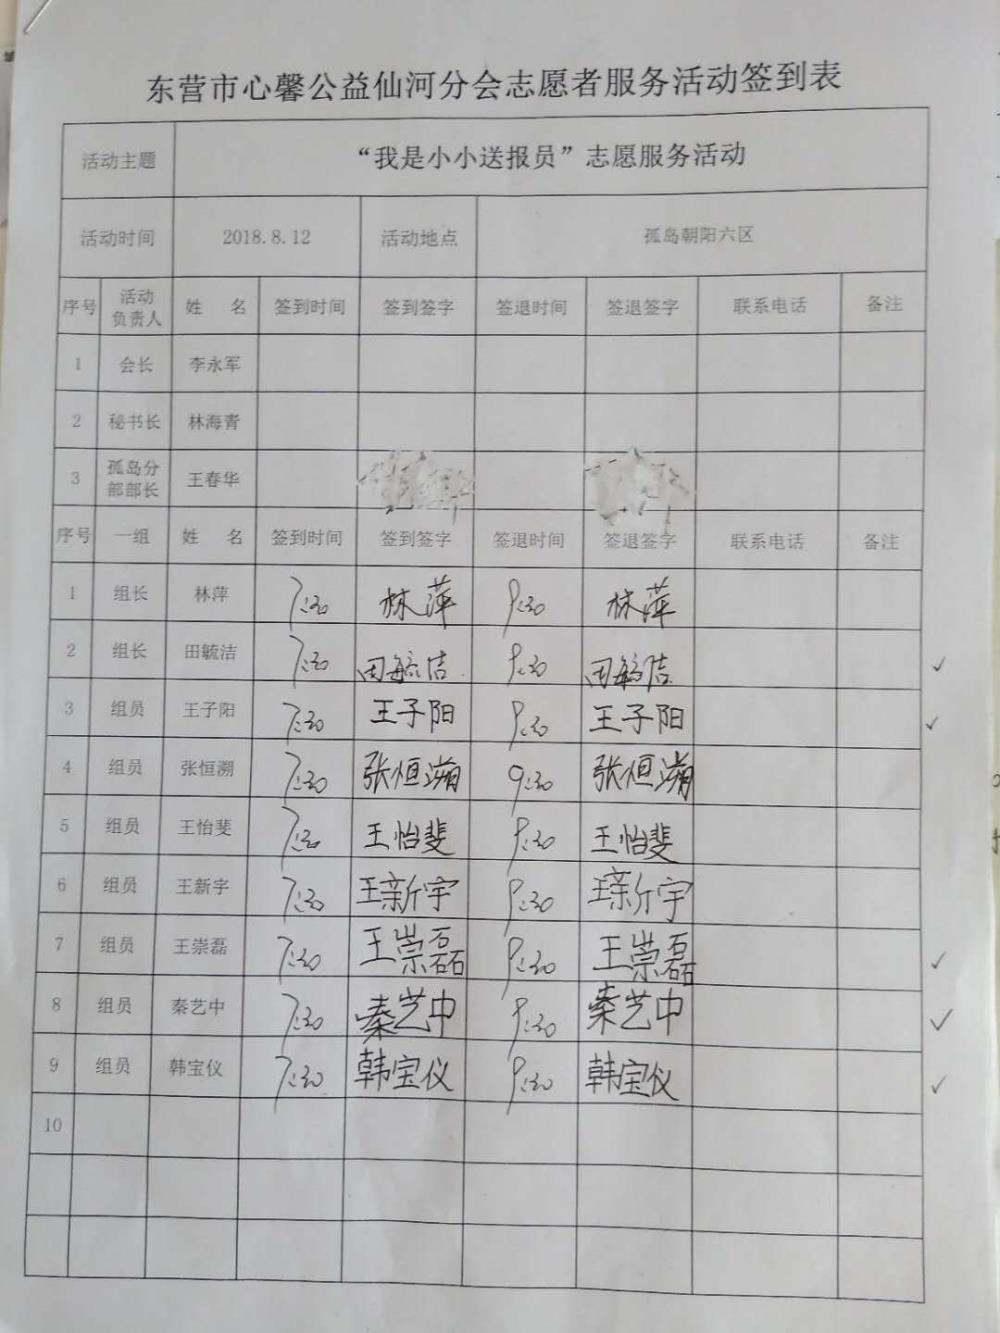 东营市心馨公益仙河分会志愿者服务活动签到表
活动主题 “我是小小送报员”志愿服务活动
活动时间 2018.8.12 活动地点 孤岛朝阳六区
序号 活动负责人 姓 名 签到时间 签到签字 签退时间 签退签字 联系电话 备注
1 会长 李永军
2 秘书长 林海青
3 孤岛分部部长 王春华
序号 一组 姓 名 签到时间 签到签字 签退时间 签退签字 联系电话 备注
1 组长 林萍 7:30 林萍 9:30 林萍
2 组长 田毓洁 7:30 田毓洁 9:30 田毓洁
3 组员 王子阳 7:30 王子阳 9:30 王子阳
4 组员 张恒溯 7:30 张恒溯 9:30 张恒溯
5 组员 王怡斐 7:30 王怡斐 9:30 王怡斐
6 组员 王新宇 7:30 王新宇 9:30 王新宇
7 组员 王崇磊 7:30 王崇磊 9:30 王崇磊
8 组员 秦艺中 7:30 秦艺中 9:30 秦艺中
9 组员 韩宝仪 7:30 韩宝仪 9:30 韩宝仪
10